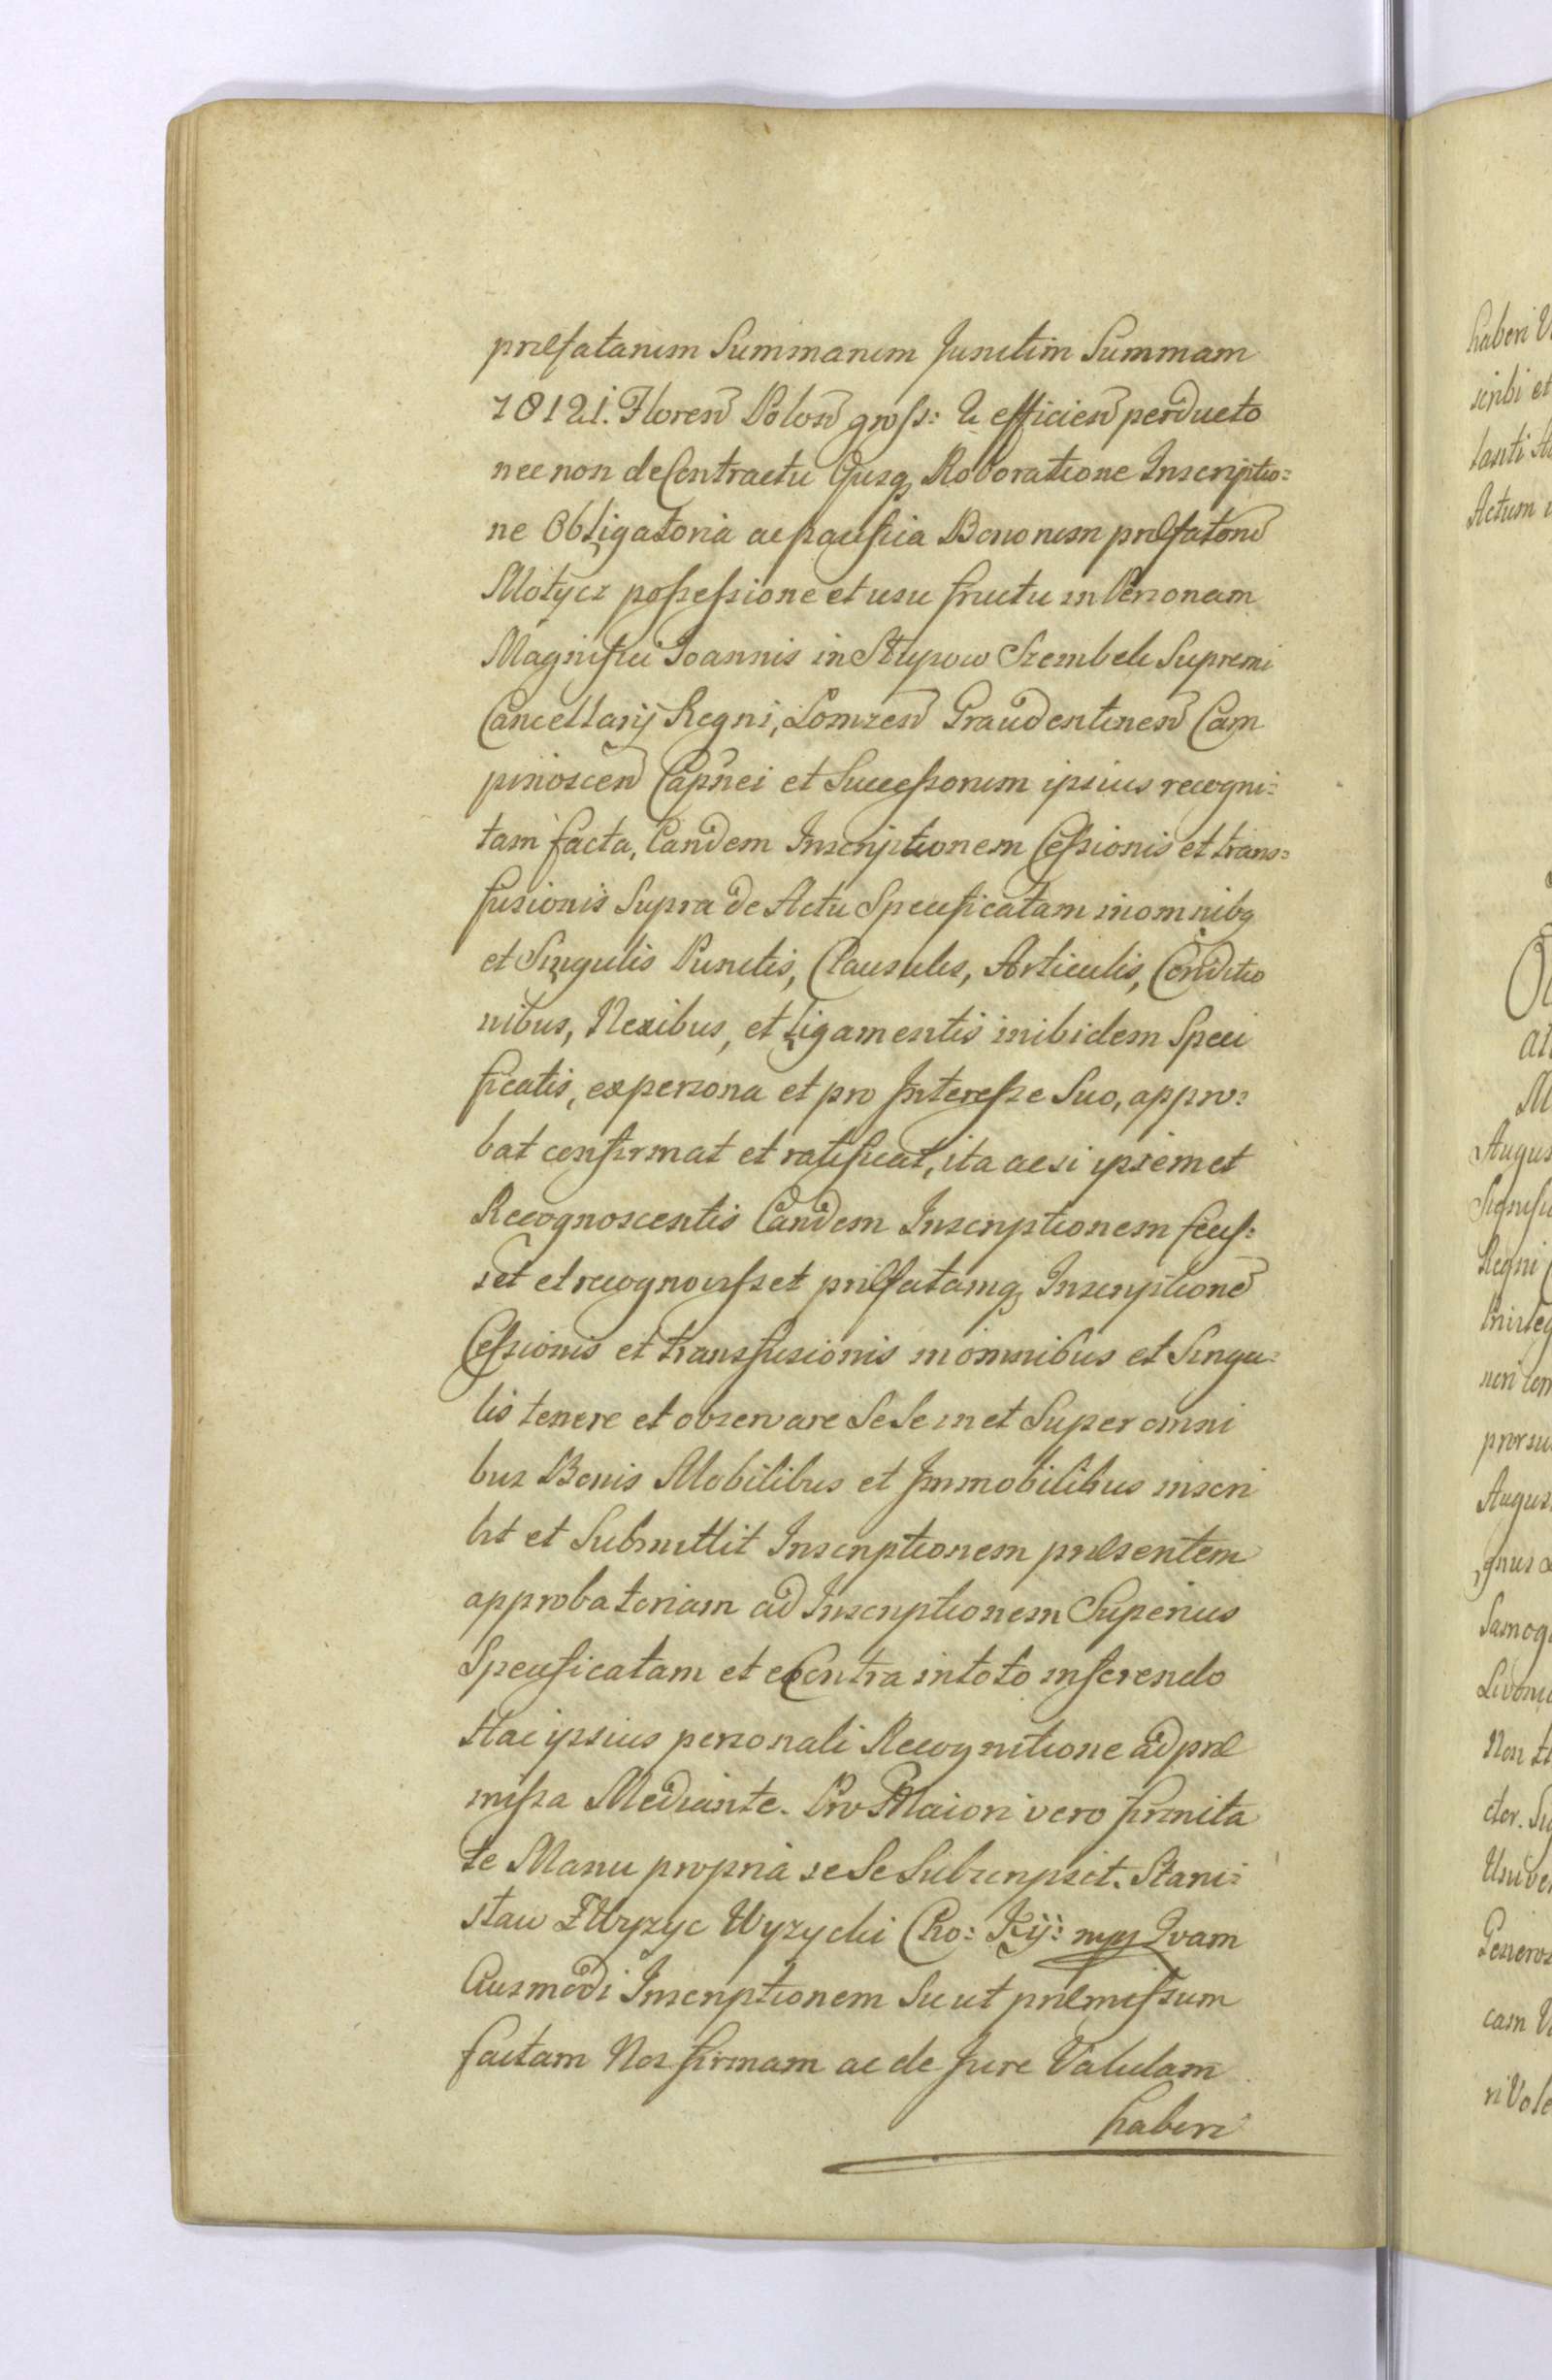 præfatarum Summarum Junctim Summam
78121. Floren Polon gross: 2 efficien perducto
nec non de Contractu Ejusq Roboratione Inscriptio=
ne Obligatoria ac pacifica Bonorum præfator
Motycz possessione et usu fructu in Personam
Magnifici Joannis in Słupow Szembek Supremi
Cancellarij Regni, Lomzen Graudentinen Cam
pinoscen Capnei et Successorum ipsius recogni=
tam facta, Eandem Inscriptionem Cessionis et trans=
fusionis Supra de Actu Specificatam in omnibq
et Singulis Punctis, Clausulis, Articulis, Conditio
nibus, Nexibus, et Ligamentis inibidem Speci
ficatis, ex persona et pro Interesse Suo, appro=
bat confirmat et ratificat, ita ac si ipsemet
Recognoscentis Eandem Inscriptionem fecis=
set et recognovisset præfatamq Inscriptione
Cessionis et transfusionis in omnibus et Singu=
lis tenere et observare Se Se met Super omni
bus Bonis Mobilibus et Immobilibus inscri
bit et Submittit Inscriptionem præsentem
approbatoriam ad Inscriptionem Superius
Specificatam et e Contra in toto inferendo
Hac ipsius personali Recognitione ad præ
missa Mediante. Pro Maiori vero firmita
te Manu propria se Se Subscripsit. Stani=
sław Z Wyzyc Wyzycki Cho: Kij: mpp Quam
Eiusmodi Inscriptionem Sicut præmissum
factam Nos firmam ac de Jure Validam
haberi
haberi V
scribi et
Actum
at
M
Augus
Signifi
Regni
prorsu
Augus
Samog
Livoni
Non
Unive
Generos
cam V
ri Vole